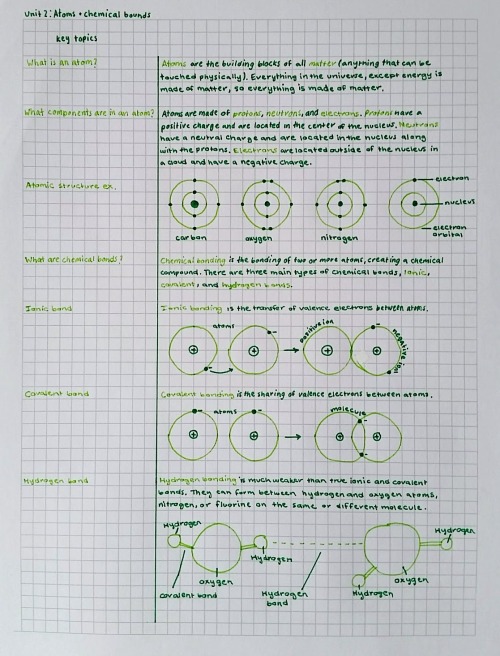 Unit 2: Atoms + chemical bounds
Key topics
What is an atom?
Atoms are the building blocks of all matter (anything that can be
touched physically). Everything in the universe, except energy is
made of matter, so everything is made of matter.
What components are in an atom?
Atoms are made of protons, neutrons, and electrons. Protons have a
positive charge and are located in the center of the nucleus. Neutrons
have a neutral charge and are located in the nucleus along
with the protons. Electrons are located outside of the nucleus in
a cloud and have a negative charge.
Atomic structure ex.
carbon
oxygen
nitrogen
electron
nucleus
electron
orbital
What are chemical bonds?
Chemical bonding is the bonding of two or more atoms, creating a chemical
compound. There are three main types of chemical bonds, ionic,
covalent, and hydrogen bonds.
Ionic bond
Ionic bonding is the transfer of valence electrons between atoms.
atoms
positive ion
negative ion
Covalent bond
Covalent bonding is the sharing of valence electrons between atoms.
atoms
molecule
Hydrogen bond
Hydrogen bonding is much weaker than true ionic and covalent
bonds. They can form between hydrogen and oxygen atoms,
nitrogen, or fluorine on the same or different molecule.
Hydrogen
Hydrogen
oxygen
covalent bond
Hydrogen
bond
Hydrogen
oxygen
Hydrogen